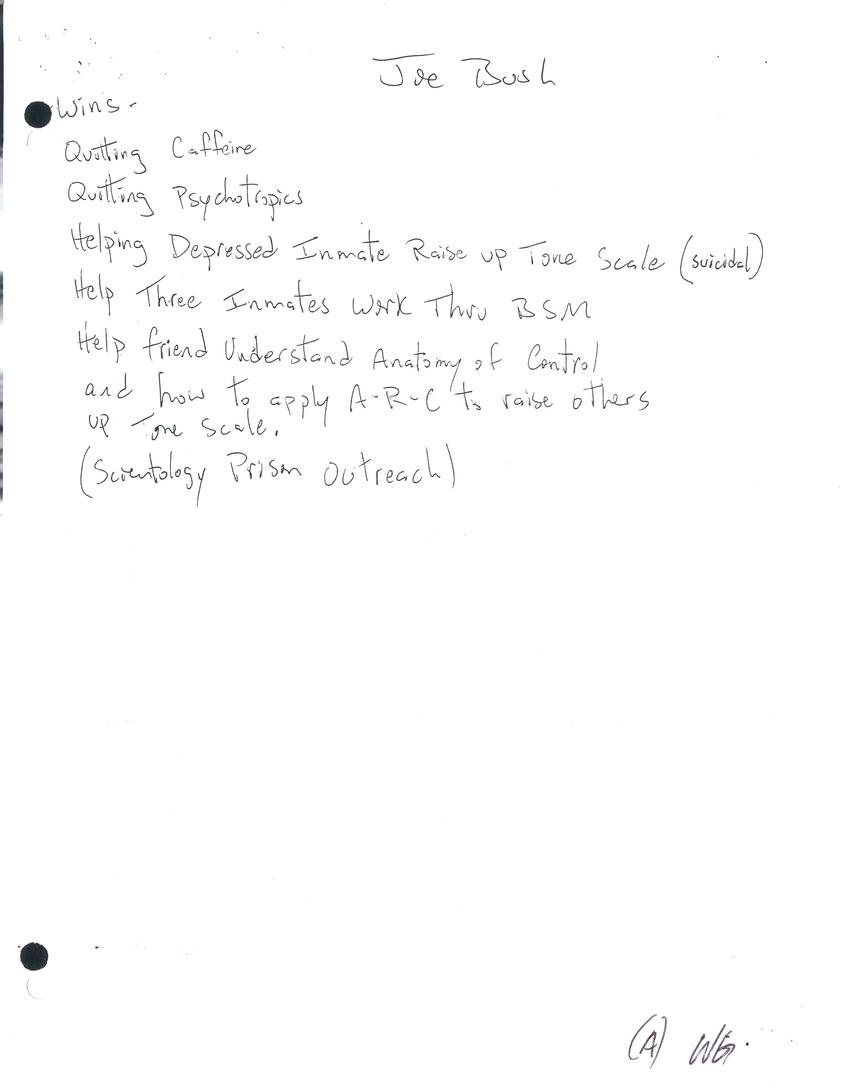 Joe Bush
Wins -
Quitting Caffeine
Quitting Psychotropics
Helping Depressed Inmate Raise up Tone Scale (suicidal)
Help Three Inmates Work Thru BSM
Help friend Understand Anatomy of Control
and how to apply A-R-C to raise others
up Tone Scale.
(Scientology Prison Outreach)
(A)